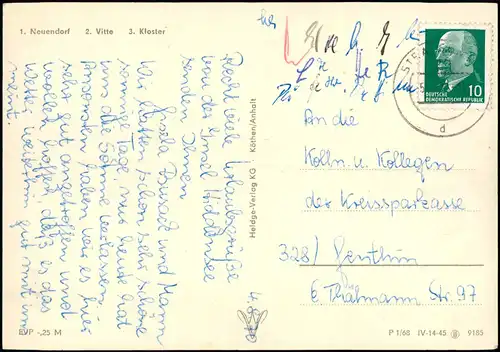 1. Neuendorf 2. Vitte 3. Kloster
Recht viele Urlaubsgrüße
von der Insel Hiddensee
senden Ihnen
Gisela Dossadt und Mann
Wir hatten schon sehr schöne
sonnige Tage, nur heute hat
uns die Sonne verlassen.
Ansonsten haben wir es hier
sehr gut angetroffen und
wollen hoffen, daß es das
Wetter weiterhin gut mit uns
meint.
EVP -,25 M
Heldge-Verlag KG Köthen/Anhalt
DEUTSCHE
DEMOKRATISCHE REPUBLIK
10
d
An die
Kolln. u. Kollegen
der Kreissparkasse
328/ Genthin
E. Thälmann Str. 97
P 1/68 IV-14-45 9185